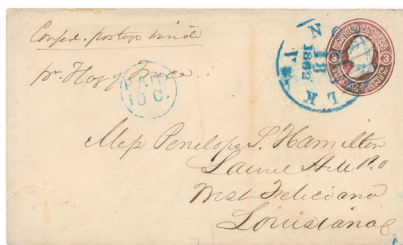 Confed. postage inside
pr. Flag of Truce.
PAID
10 C.
N
18
1862
Va.
L K
UNITED STATES
3
THREE CENTS
3
Miss Penelope S. Hamilton
Laurel Hill P.o
West Feliciana
Louisiana